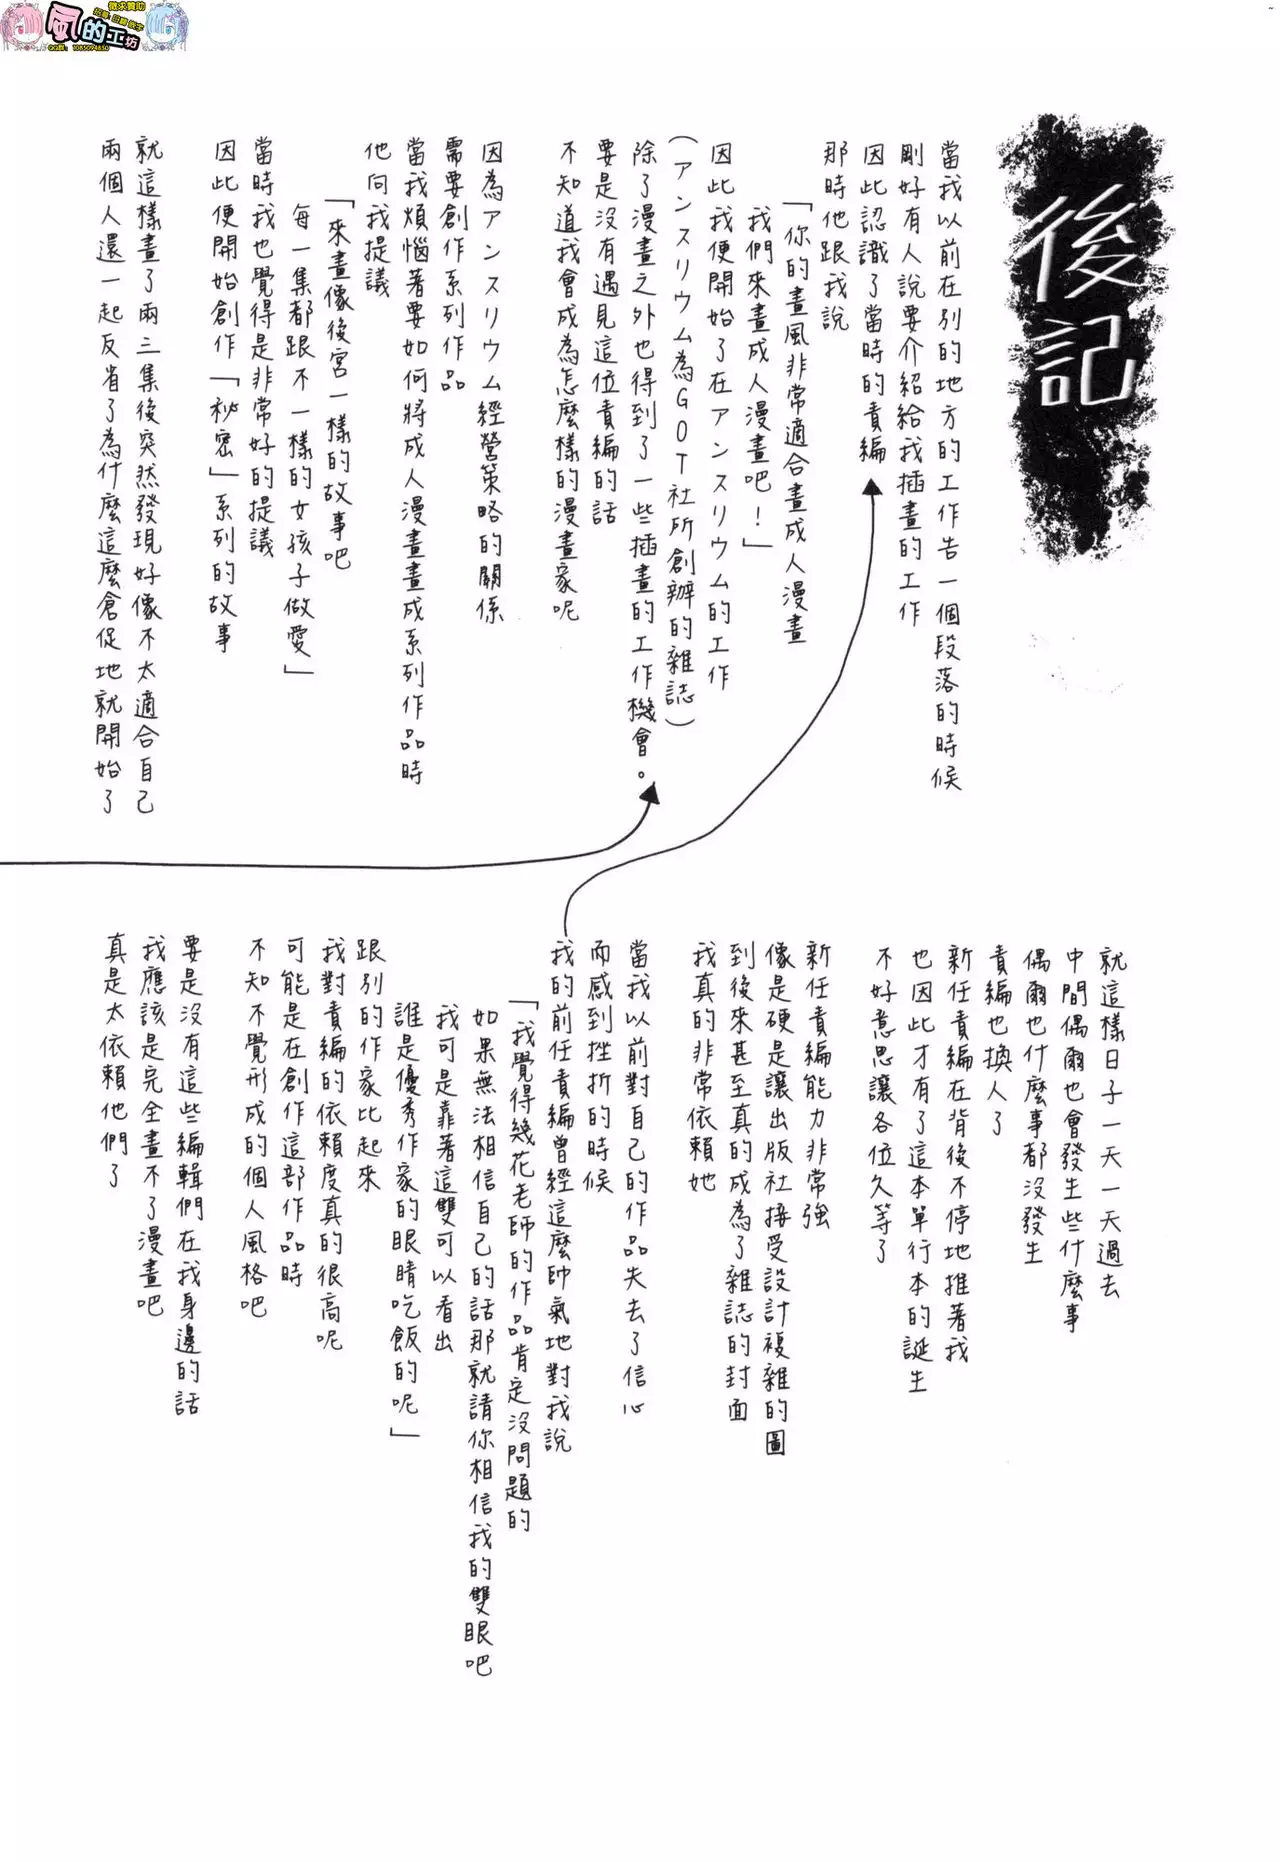 徵求贊助
風的工坊
QQ群：1085094850
後記
當我以前在別的地方的工作告一個段落的時候
剛好有人說要介紹給我插畫的工作
因此認識了當時的責編
那時他跟我說
「你的畫風非常適合畫成人漫畫
我們來畫成人漫畫吧！」
因此我便開始了在アンスリウム的工作
（アンスリウム為GOT社所創辦的雜誌）
除了漫畫之外也得到了一些插畫的工作機會。
要是沒有遇見這位責編的話
不知道我會成為怎麼樣的漫畫家呢
因為アンスリウム經營策略的關係
需要創作系列作品
當我煩惱著要如何將成人漫畫畫成系列作品時
他向我提議
「來畫像後宮一樣的故事吧
每一集都跟不一樣的女孩子做愛」
當時我也覺得是非常好的提議
因此便開始創作「祕密」系列的故事
就這樣畫了兩三集後突然發現好像不太適合自己
兩個人還一起反省了為什麼這麼倉促地就開始了
就這樣日子一天一天過去
中間偶爾也會發生些什麼事
偶爾也什麼事都沒發生
責編也換人了
新任責編在背後不停地推著我
也因此才有了這本單行本的誕生
不好意思讓各位久等了
新任責編能力非常強
像是硬是讓出版社接受設計複雜的圖
到後來甚至真的成為了雜誌的封面
我真的非常依賴她
當我以前對自己的作品失去了信心
而感到挫折的時候
我的前任責編曾經這麼帥氣地對我說
「我覺得幾花老師的作品肯定沒問題的
如果無法相信自己的話那就請你相信我的雙眼吧
我可是靠著這雙可以看出
誰是優秀作家的眼睛吃飯的呢」
跟別的作家比起來
我對責編的依賴度真的很高呢
可能是在創作這部作品時
不知不覺形成的個人風格吧
要是沒有這些編輯們在我身邊的話
我應該是完全畫不了漫畫吧
真是太依賴他們了